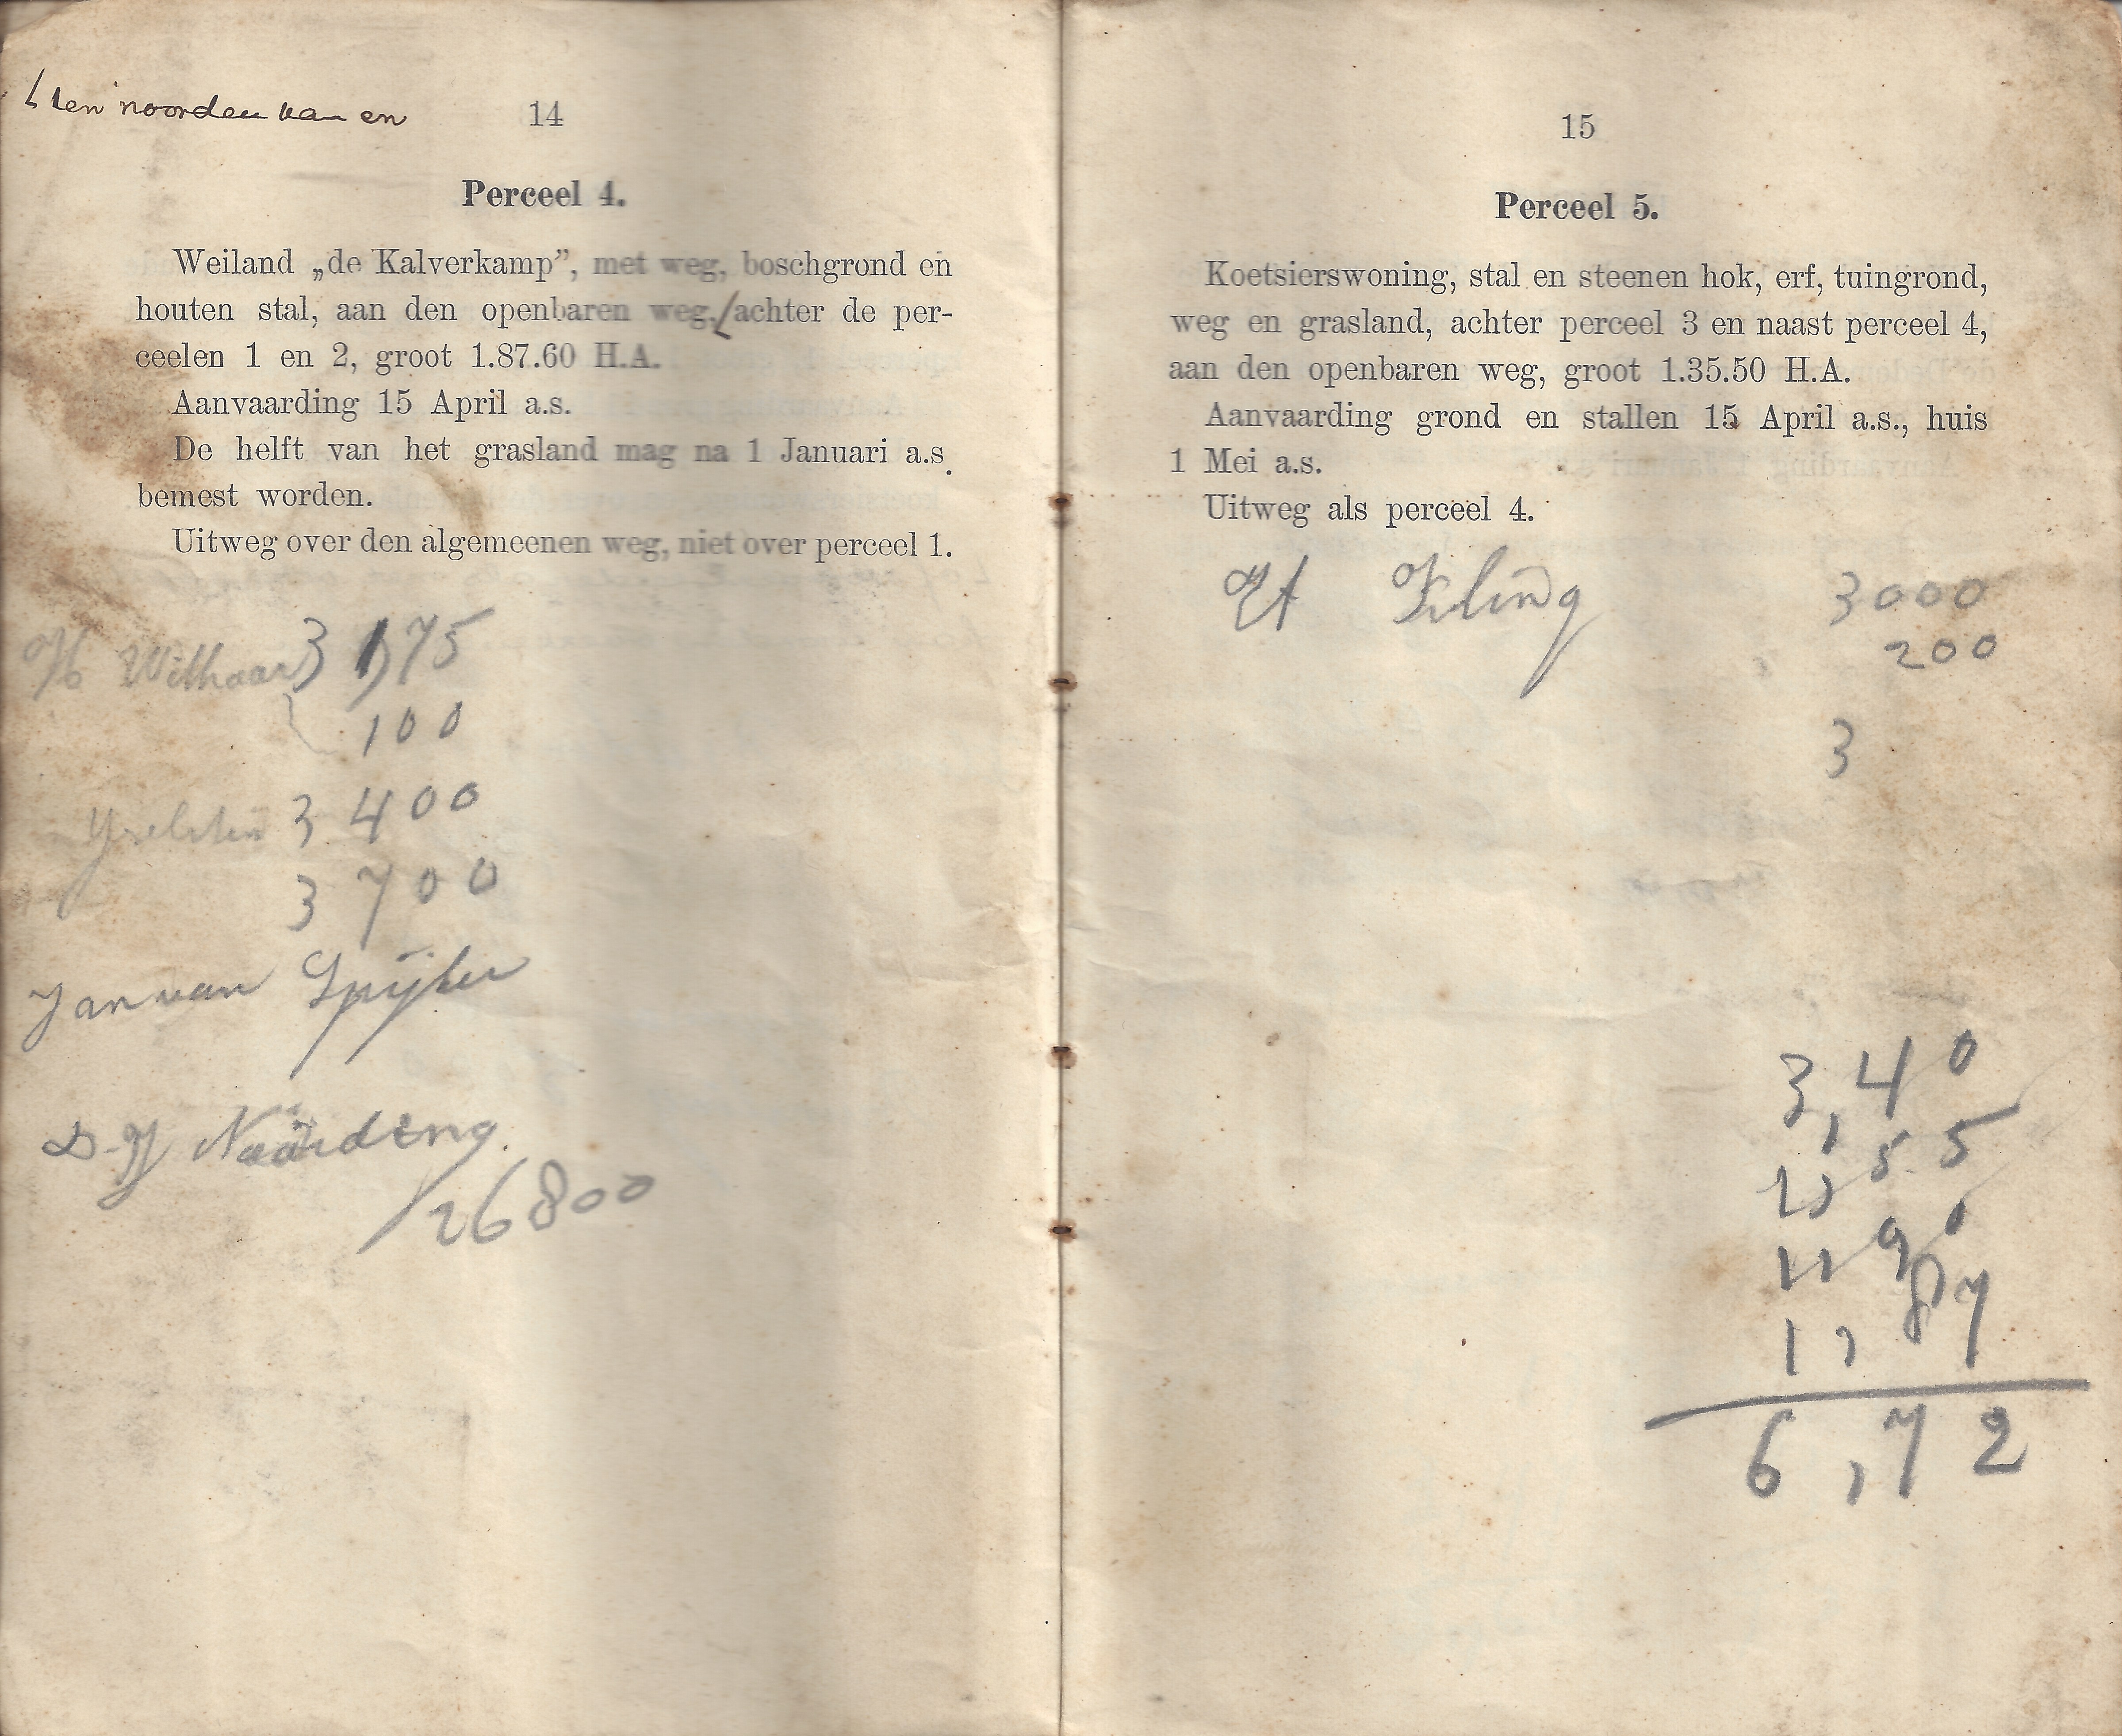 ten noorden van en
14
Perceel 4.
Weiland „de Kalverkamp”, met weg, boschgrond en
houten stal, aan den openbaren weg, achter de per-
ceelen 1 en 2, groot 1.87.60 H.A.
Aanvaarding 15 April a.s.
De helft van het grasland mag na 1 Januari a.s.
bemest worden.
Uitweg over den algemeenen weg, niet over perceel 1.
Withaar 3 175
100
3 400
3 700
Jan van Spijker
D. Naarding
26800
15
Perceel 5.
Koetsierswoning, stal en steenen hok, erf, tuingrond,
weg en grasland, achter perceel 3 en naast perceel 4,
aan den openbaren weg, groot 1.35.50 H.A.
Aanvaarding grond en stallen 15 April a.s., huis
1 Mei a.s.
Uitweg als perceel 4.
Kling 3000
200
3
3,40
55
90
1,87
6,72